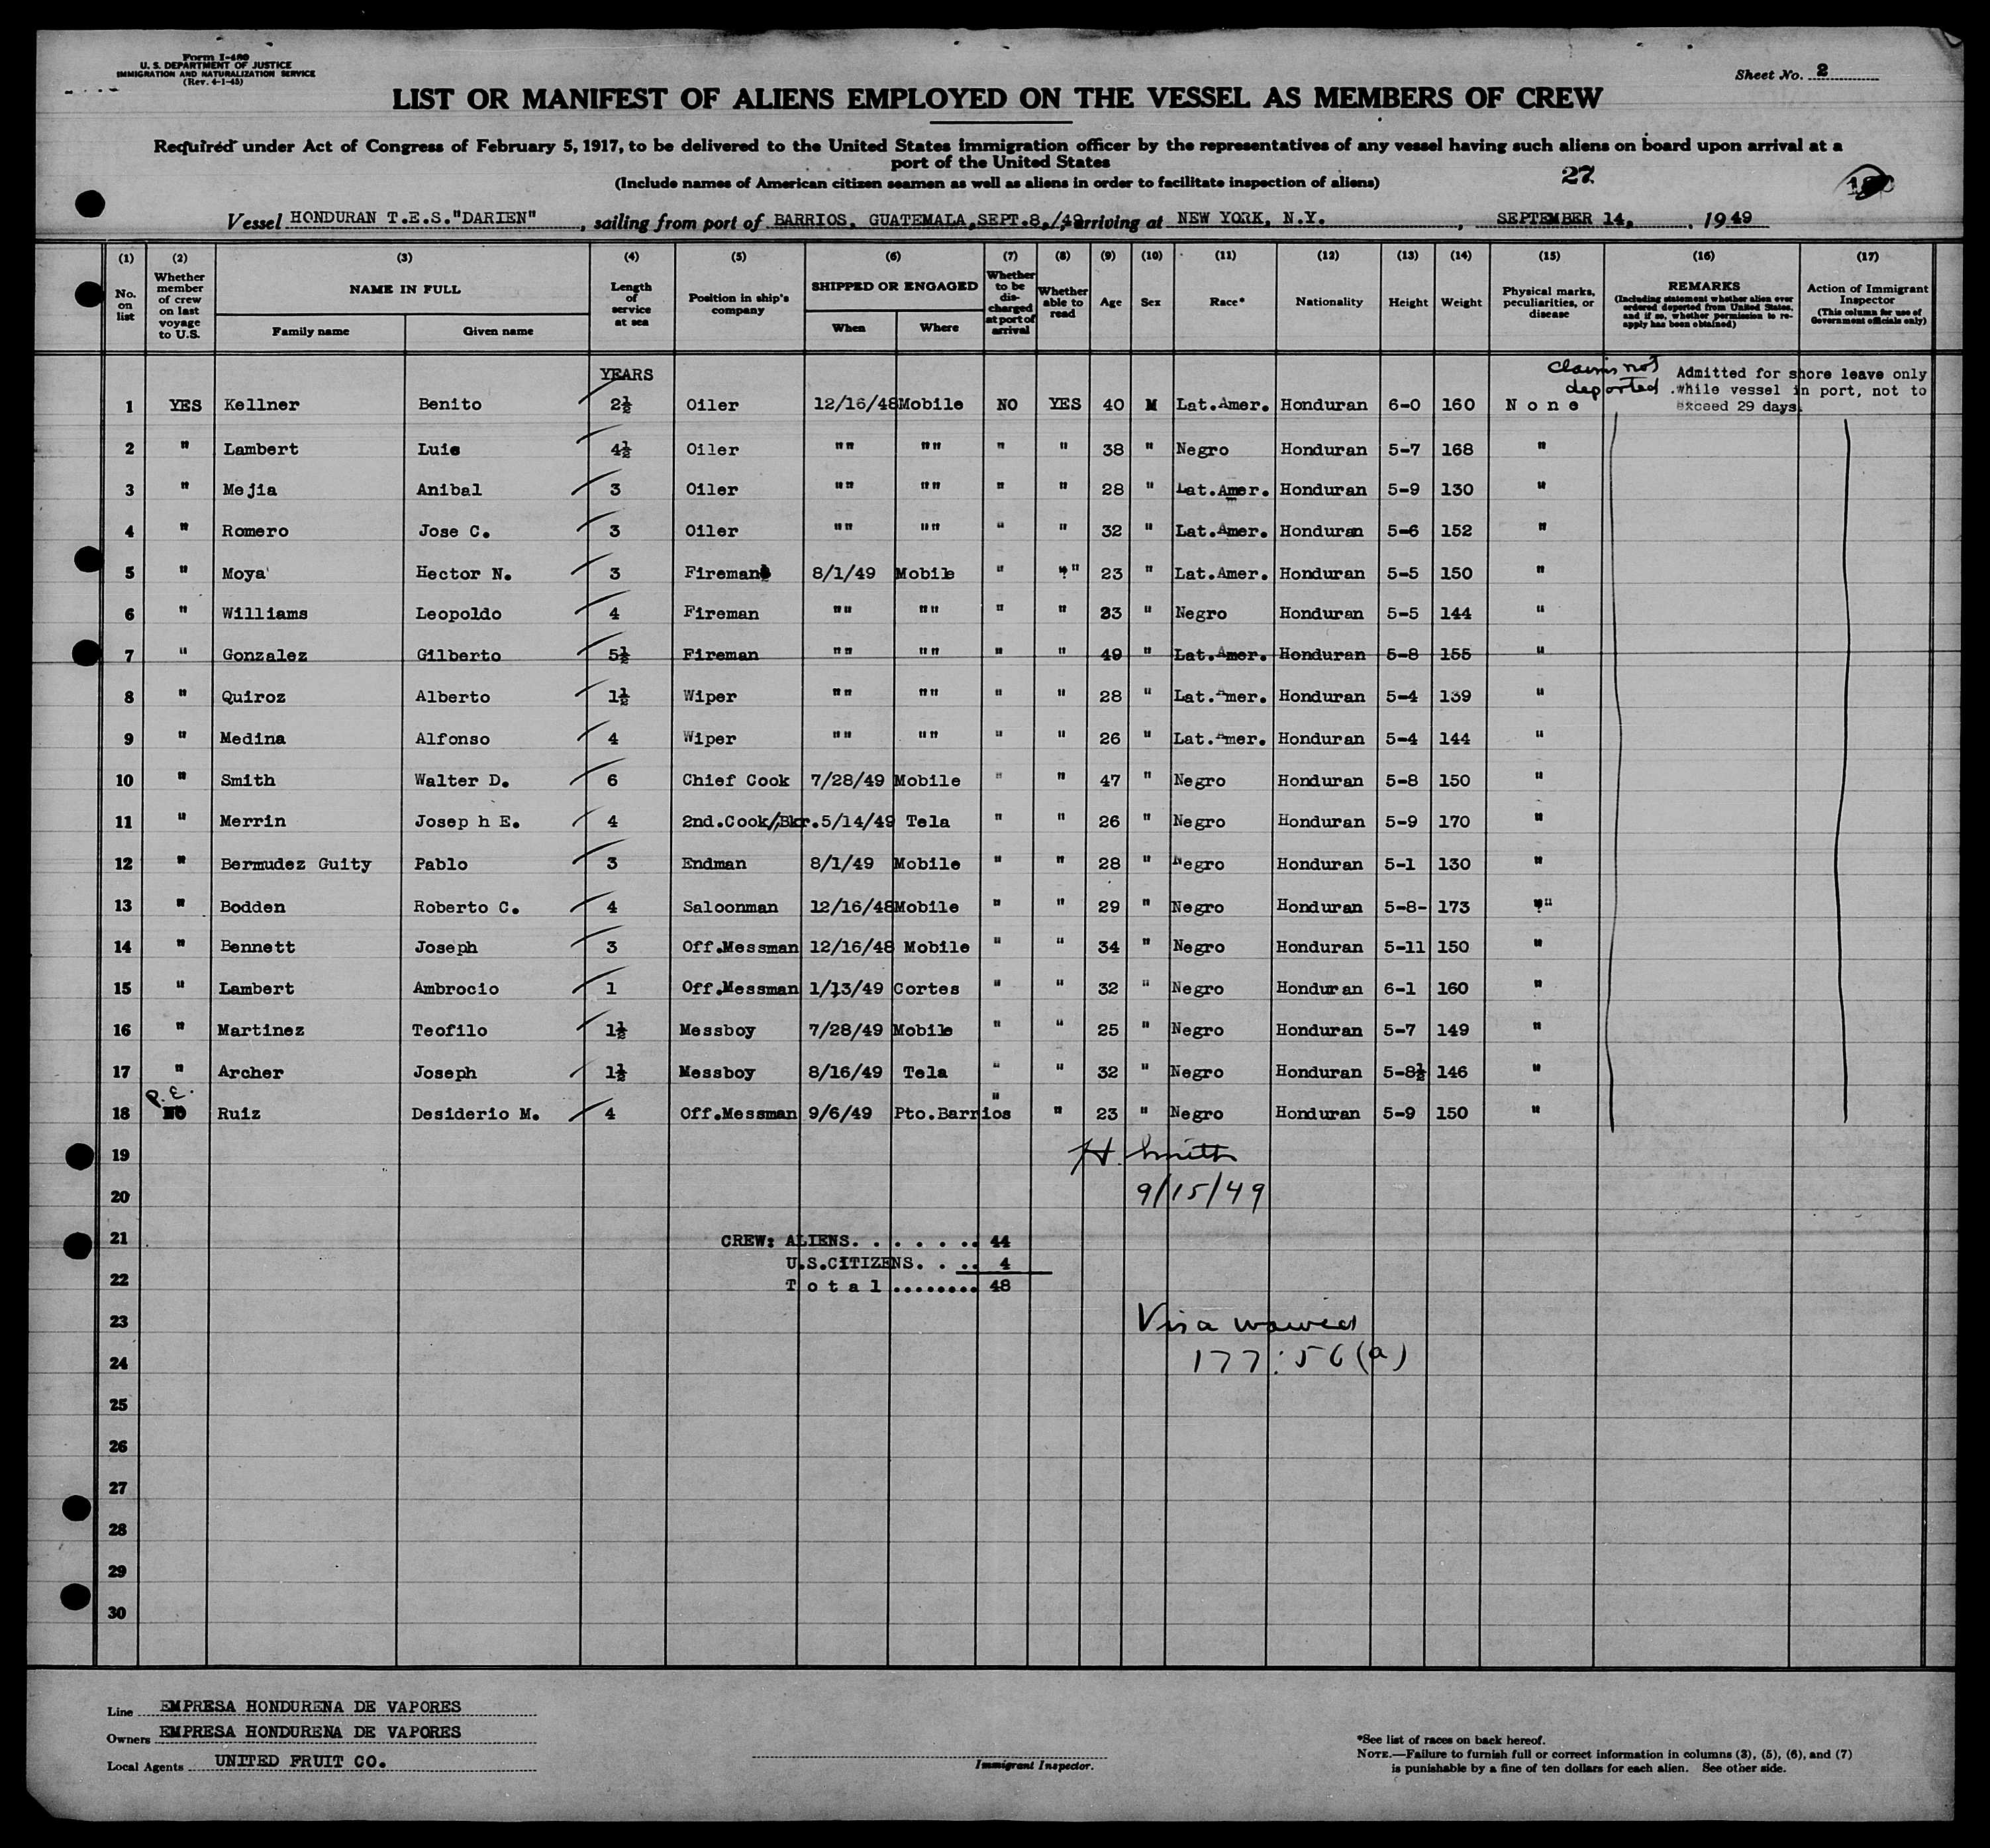 Form I-480
U. S. DEPARTMENT OF JUSTICE
IMMIGRATION AND NATURALIZATION SERVICE
(Rev. 4-1-45)
Sheet No. 2
LIST OR MANIFEST OF ALIENS EMPLOYED ON THE VESSEL AS MEMBERS OF CREW
Required under Act of Congress of February 5, 1917, to be delivered to the United States immigration officer by the representatives of any vessel having such aliens on board upon arrival at a
port of the United States
(Include names of American citizen seamen as well as aliens in order to facilitate inspection of aliens)
27
Vessel HONDURAN T.E.S."DARIEN", sailing from port of BARRIOS, GUATEMALA,SEPT.8,/49 arriving at NEW YORK, N.Y., SEPTEMBER 14, 1949
(1) (2) (3) (4) (5) (6) (7) (8) (9) (10) (11) (12) (13) (14) (15) (16) (17)
No. on list
Whether member of crew on last voyage to U.S.
NAME IN FULL
Family name Given name
Length of service at sea
Position in ship's company
SHIPPED OR ENGAGED
When Where
Whether to be discharged at port of arrival
Whether able to read
Age Sex Race* Nationality Height Weight
Physical marks, peculiarities, or disease
REMARKS
(Including statement whether alien ever ordered deported from United States, and if so, whether permission to reapply has been obtained)
Action of Immigrant Inspector
(This column for use of Government officials only)
YEARS
claims not deported
Admitted for shore leave only
while vessel in port, not to
exceed 29 days.
1 YES Kellner Benito 2½ Oiler 12/16/48 Mobile NO YES 40 M Lat.Amer. Honduran 6-0 160 None
2 " Lambert Luis 4½ Oiler "" "" " " 38 " Negro Honduran 5-7 168 "
3 " Mejia Anibal 3 Oiler "" "" " " 28 " Lat.Amer. Honduran 5-9 130 "
4 " Romero Jose C. 3 Oiler "" "" " " 32 " Lat.Amer. Honduran 5-6 152 "
5 " Moya Hector N. 3 Fireman 8/1/49 Mobile " " 23 " Lat.Amer. Honduran 5-5 150 "
6 " Williams Leopoldo 4 Fireman "" "" " " 23 " Negro Honduran 5-5 144 "
7 " Gonzalez Gilberto 5½ Fireman "" "" " " 49 " Lat.Amer. Honduran 5-8 155 "
8 " Quiroz Alberto 1½ Wiper "" "" " " 28 " Lat.Amer. Honduran 5-4 139 "
9 " Medina Alfonso 4 Wiper "" "" " " 26 " Lat.Amer. Honduran 5-4 144 "
10 " Smith Walter D. 6 Chief Cook 7/28/49 Mobile " " 47 " Negro Honduran 5-8 150 "
11 " Merrin Josep h E. 4 2nd.Cook/Bkr. 5/14/49 Tela " " 26 " Negro Honduran 5-9 170 "
12 " Bermudez Guity Pablo 3 Endman 8/1/49 Mobile " " 28 " Negro Honduran 5-1 130 "
13 " Bodden Roberto C. 4 Saloonman 12/16/48 Mobile " " 29 " Negro Honduran 5-8- 173 "
14 " Bennett Joseph 3 Off.Messman 12/16/48 Mobile " " 34 " Negro Honduran 5-11 150 "
15 " Lambert Ambrocio 1 Off.Messman 1/13/49 Cortes " " 32 " Negro Honduran 6-1 160 "
16 " Martinez Teofilo 1½ Messboy 7/28/49 Mobile " " 25 " Negro Honduran 5-7 149 "
17 " Archer Joseph 1½ Messboy 8/16/49 Tela " " 32 " Negro Honduran 5-8½ 146 "
P.E.
18 NO Ruiz Desiderio M. 4 Off.Messman 9/6/49 Pto.Barrios " " 23 " Negro Honduran 5-9 150 "
19 H. Smith
20 9/15/49
21 CREW: ALIENS. . . . . . .. 44
U.S.CITIZENS. . .. 4
22 T o t a l ........ 48
23 Visa waived
24 177:56(a)
25
26
27
28
29
30
Line EMPRESA HONDURENA DE VAPORES
Owners EMPRESA HONDURENA DE VAPORES
Local Agents UNITED FRUIT CO.
Immigrant Inspector.
*See list of races on back hereof.
NOTE.—Failure to furnish full or correct information in columns (3), (5), (6), and (7)
is punishable by a fine of ten dollars for each alien. See other side.